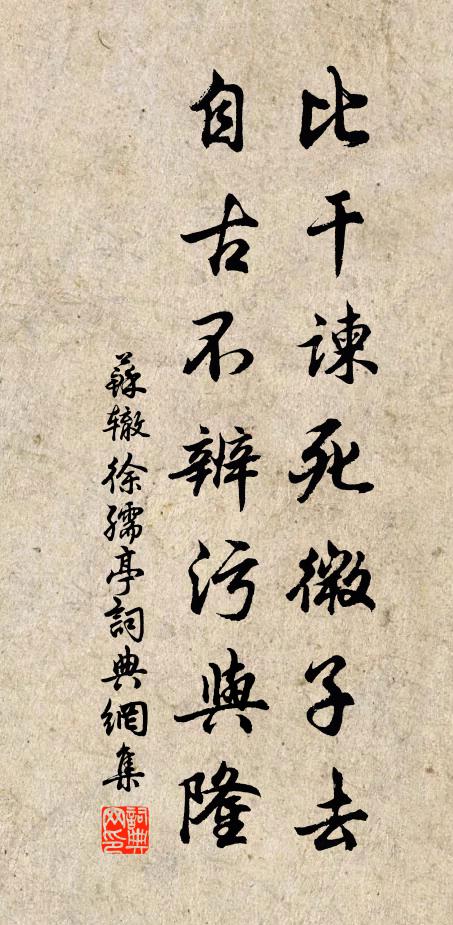 比干諫死微子去
自古不辨污與隆
蘇辙徐孺亭詞典網集
詞典网印